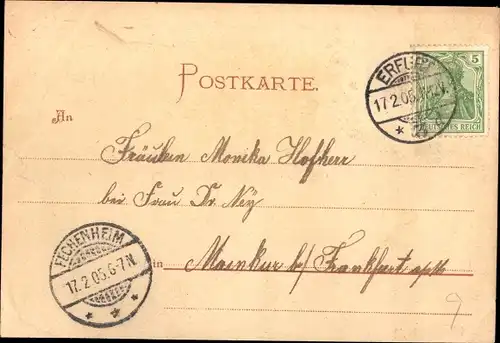 POSTKARTE.
ERFURT
17.2.05.
5
DEUTSCHES REICH
An
Fräulein Monika Hofherr
bei Frau Dr. Ney
in Mainkur b/ Frankfurt a/M
FECHENHEIM
17.2.05.6-7N.
* * *
9